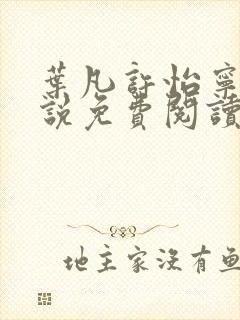 葉凡許怡寧
說免費閱讀
地主家沒有魚